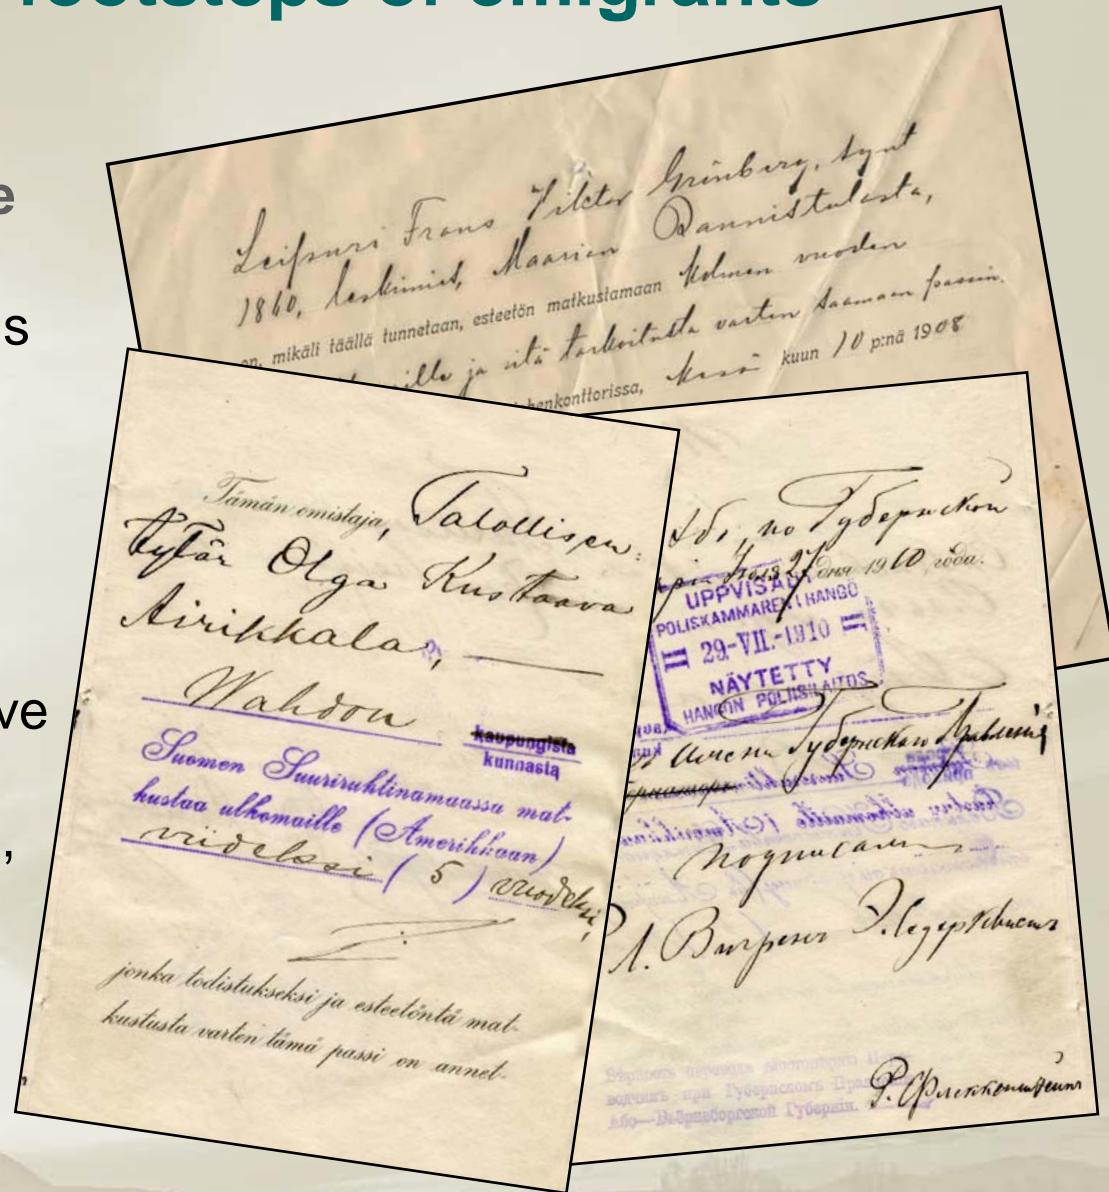 footsteps of emigrants
e
s
ve
,
Leipuri Frans Viktor Grönberg, synt
1860, leskimies, Maarian Rannistulasta,
on, mikäli täällä tunnetaan, esteetön matkustamaan kolmen vuoden
ille ja sitä tarkoitusta varten saamaan passin.
henkonttorissa, kesä kuun 10 p:nä 1908
Tämän omistaja, Talollisen-
tytär Olga Kustaava
Airikkala,
Wahdon kaupungista
kunnasta
Suomen Suuriruhtinamaassa mat-
kustaa ulkomaille (Amerikkaan)
viideksi (5) vuodeksi,
jonka todistukseksi ja esteetöntä mat-
kustusta varten tämä passi on annet-
Або, по Губернской
27 дня 1910 года.
UPPVISAD
POLISKAMMAREN I HANGÖ
29-VII.-1910
NÄYTETTY
HANGON POLIISILAITOS
Губернскаго Правления
подписали
Верность перевода
при Губернскомъ
Або—Бьёрнеборгской Губернiи.